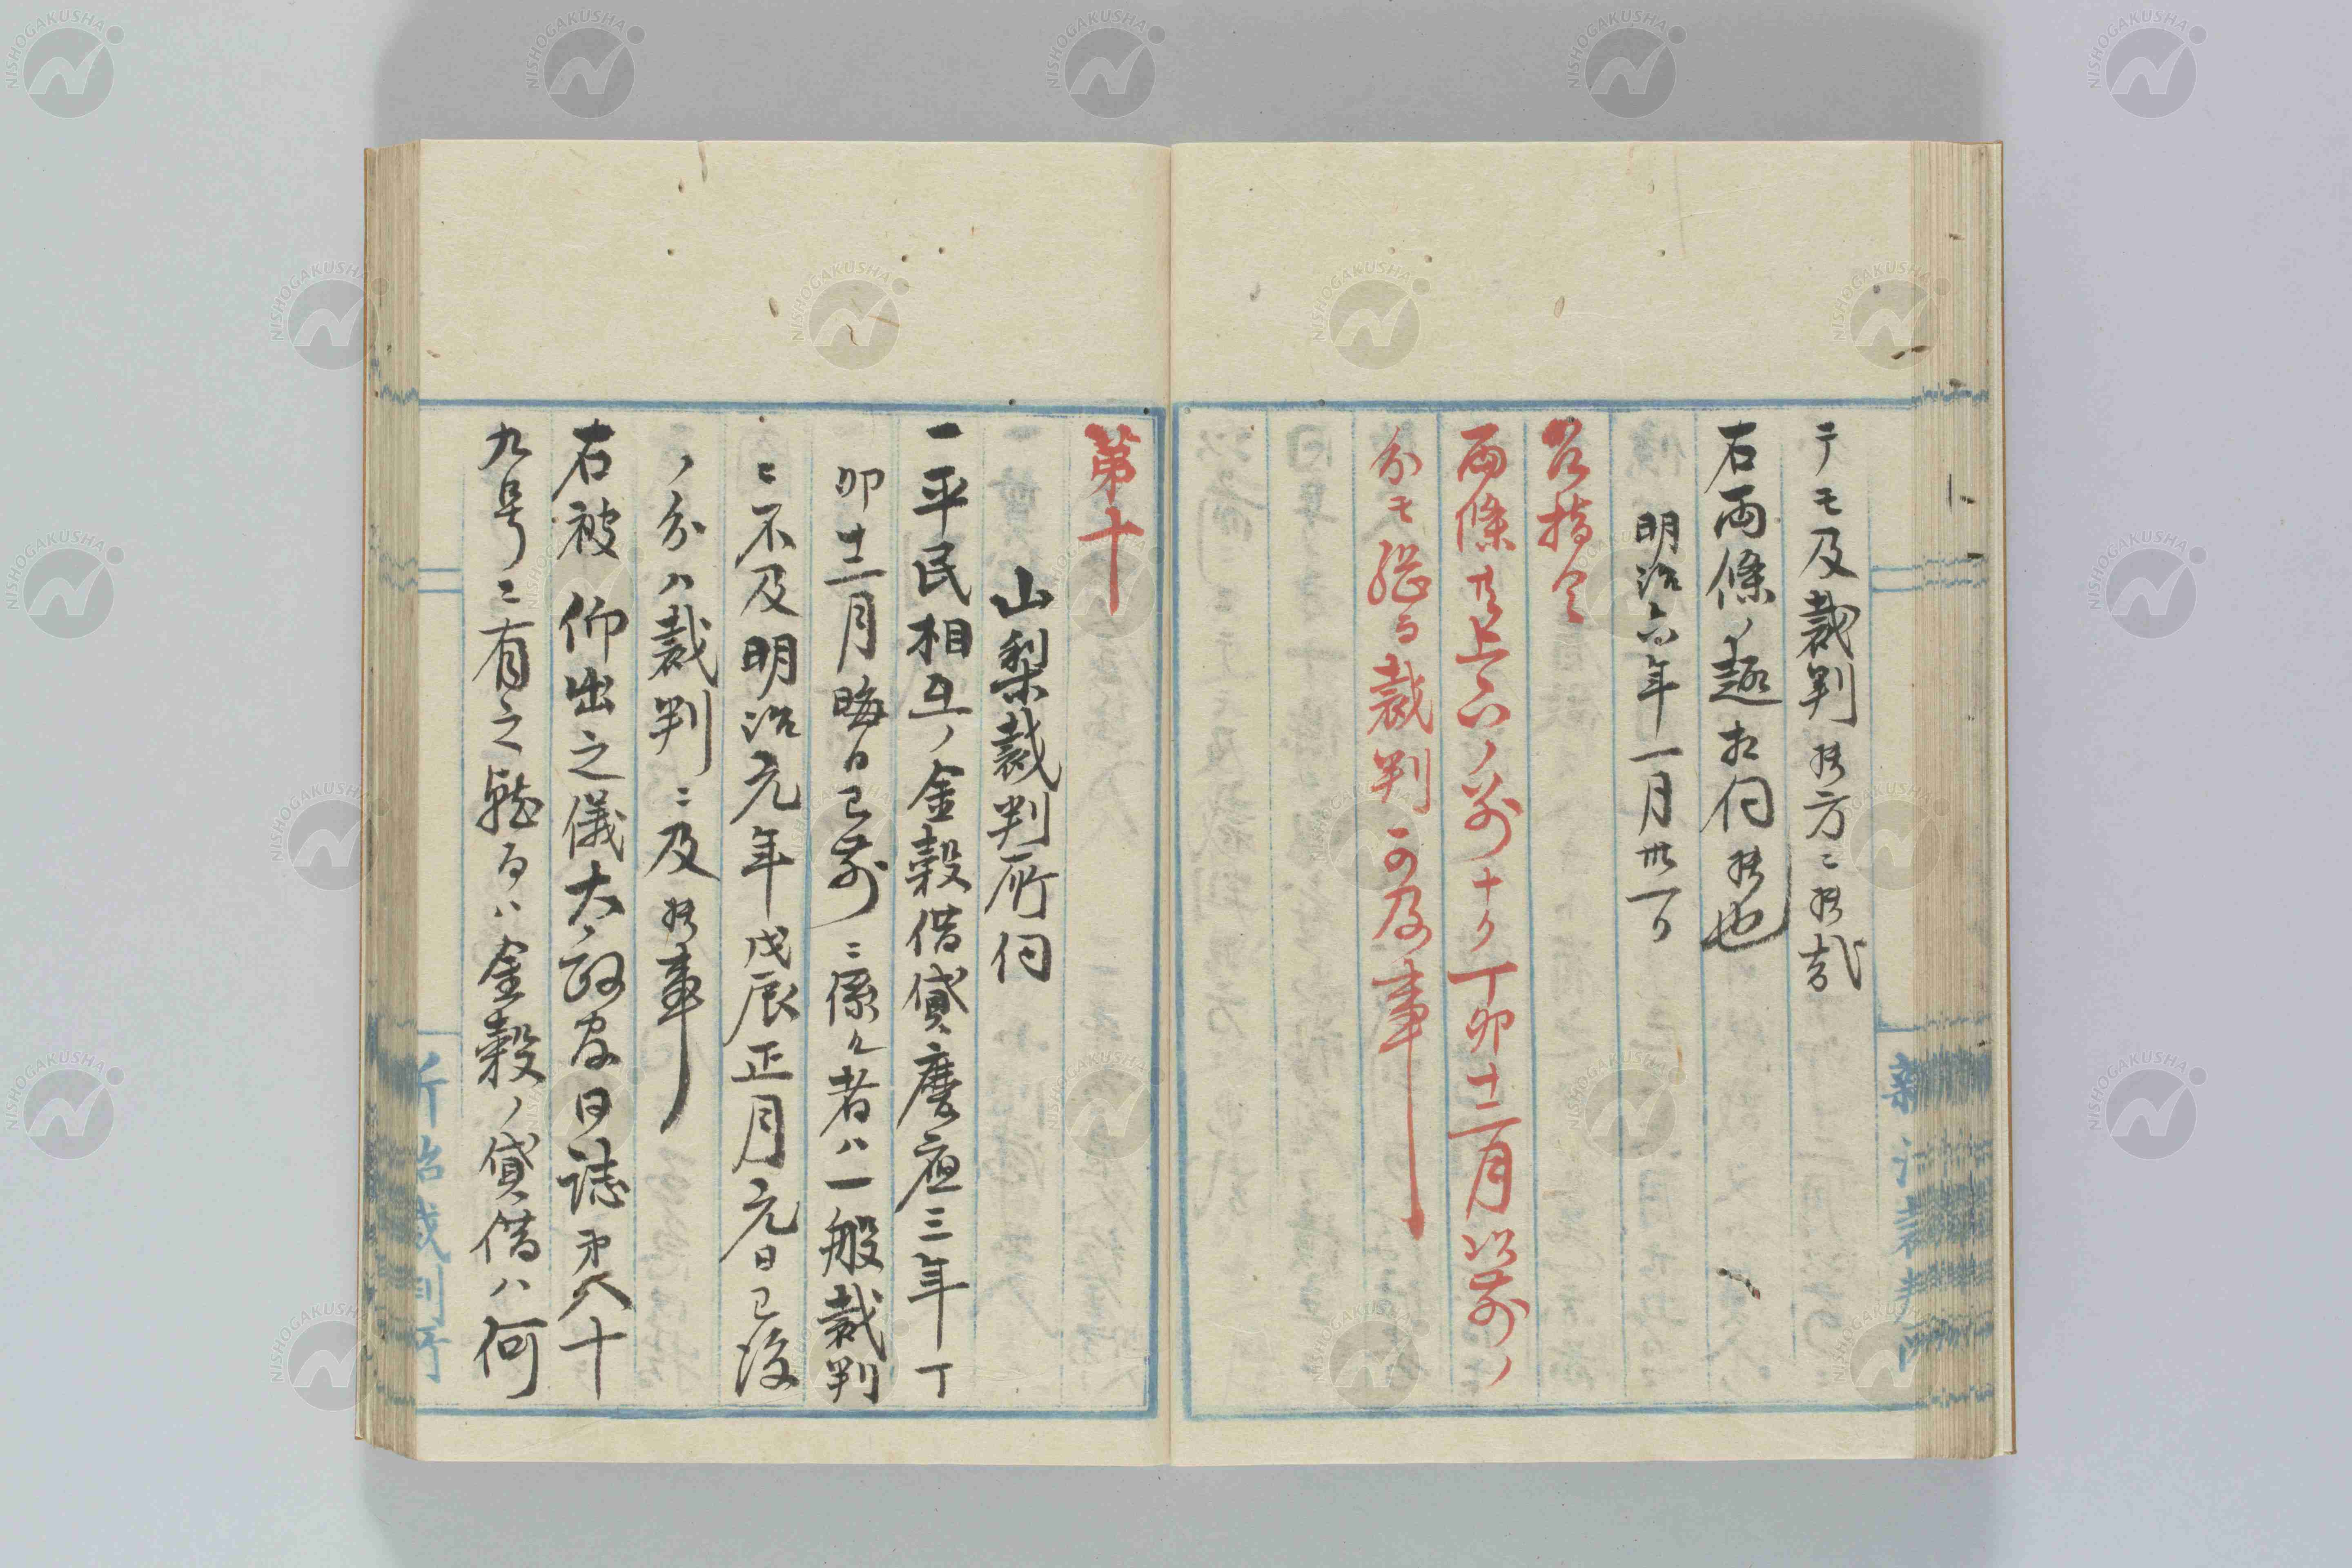 テモ及裁判候方ニ候哉
右両條ノ趣相伺候也
明治六年一月卅一日
答指令
両條共上ハノ前十ケ丁卯十二月以前ノ
分モ総テ裁判可及事
第十
山梨裁判所伺
一平民相互ノ金穀借貸慶應三年丁
卯十二月晦日已前ニ係ル者ハ一般裁判
ニ不及明治元年戊辰正月元日已後
ノ分ハ裁判ニ及候事
右被仰出之儀太政官日誌第八十
九号ニ有之就テハ金穀ノ貸借ハ何
新治裁判所
新治裁判所